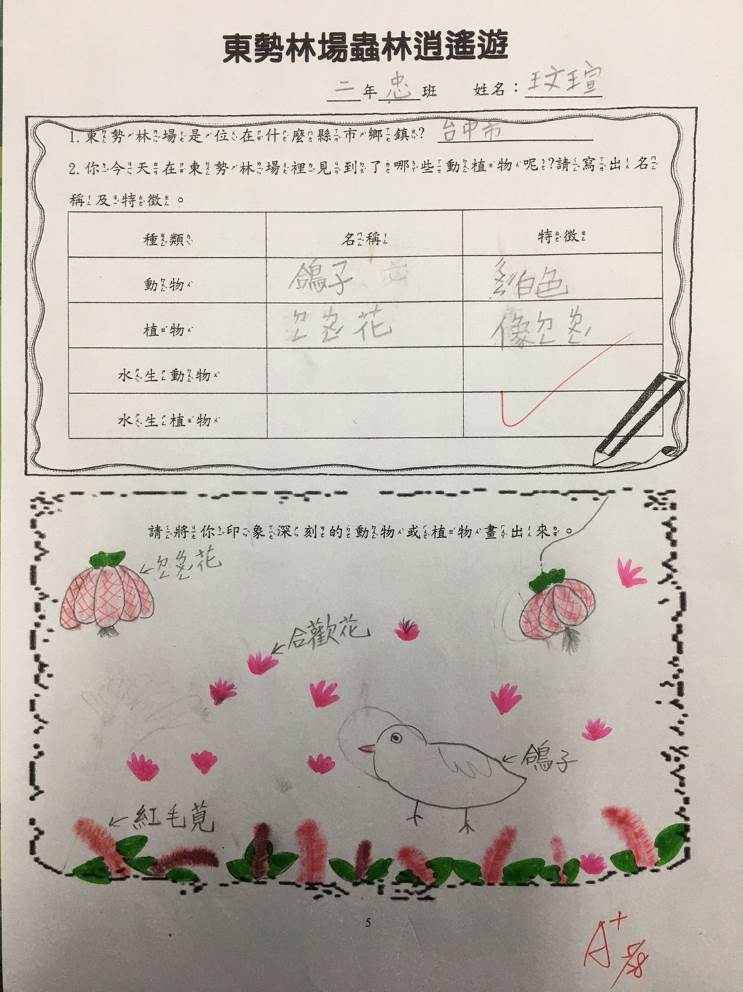 東勢林場蟲林逍遙遊
二年忠班 姓名：王文瑄
1. 東勢林場是位在什麼縣市鄉鎮? 台中市
2. 你今天在東勢林場裡見到了哪些動植物呢?請寫出名
稱及特徵。
種類 名稱 特徵
動物 鴿子 白色
植物 ㄉㄥ ㄌㄨㄥˊ 花 像ㄉㄥ ㄌㄨㄥˊ
水生動物
水生植物
請將你印象深刻的動物或植物畫出來。
←ㄉㄥ ㄌㄨㄥˊ 花
←合歡花
←鴿子
←紅毛莧
5
A+